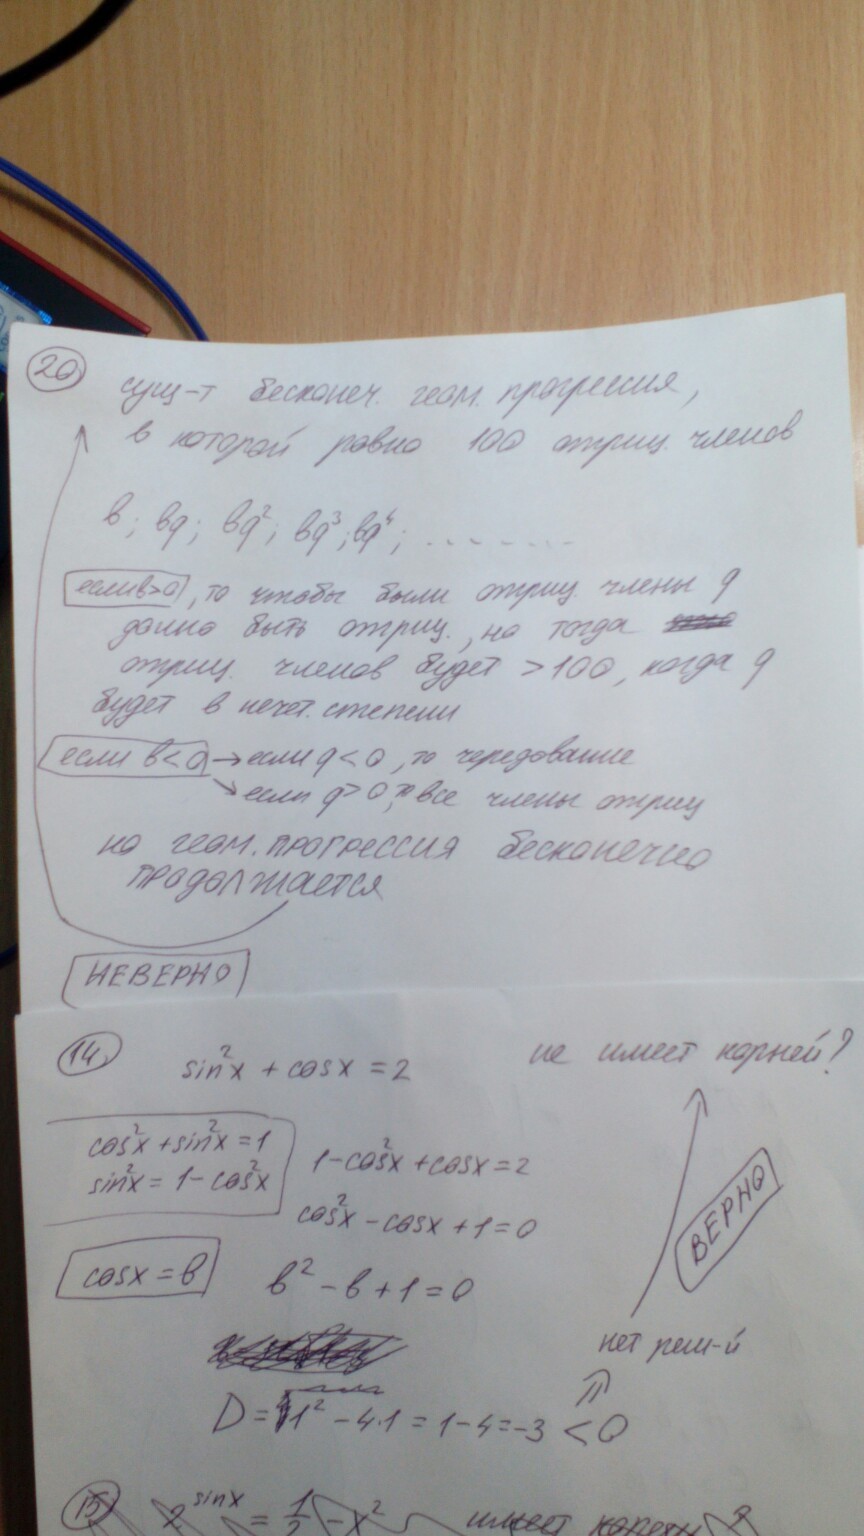 20
сущ-т бесконеч. геом. прогрессия,
в которой равно 100 отриц. членов
в; вq; вq²; вq³; вq⁴; .......
если в>0, то чтобы были отриц. члены q
должно быть отриц., но тогда
отриц. членов будет >100, когда q
будет в нечет. степени
если в<0 → если q<0, то чередование
→ если q>0, то все члены отриц
но геом. прогрессия бесконечно
продолжается
НЕВЕРНО
14. sin²x + cosx = 2 не имеет корней?
cos²x + sin²x = 1
sin²x = 1 - cos²x
1 - cos²x + cosx = 2
cos²x - cosx + 1 = 0
ВЕРНО
cosx = в
в² - в + 1 = 0
нет реш-й
D = 1² - 4·1 = 1 - 4 = -3 < 0
15 2^sinx = 1/2 - x² имеет корень?